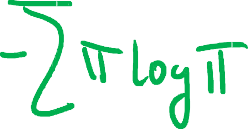 -∑π log π